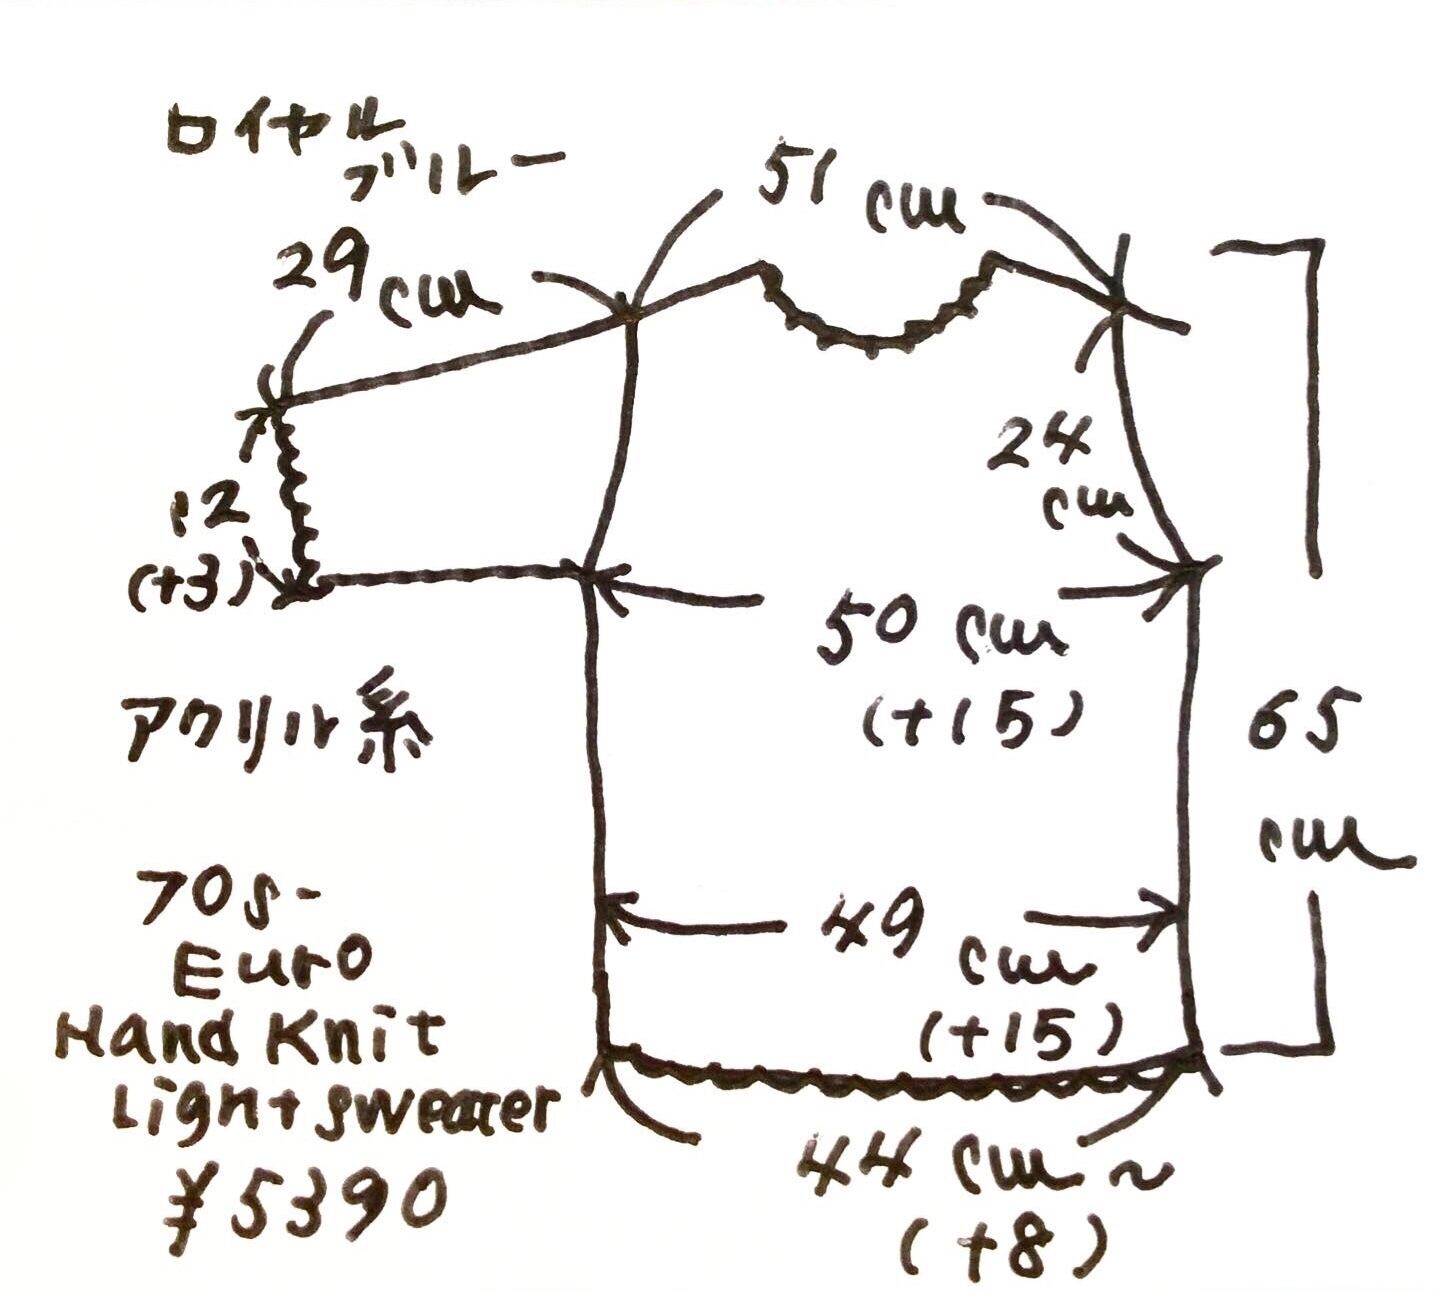 ロイヤル
ブルー
51 cm
29 cm
24
cm
12
(+3)
50 cm
(+15)
アクリル糸
65
cm
70s-
Euro
Hand Knit
Light sweater
¥5390
49 cm
(+15)
44 cm~
(+8)